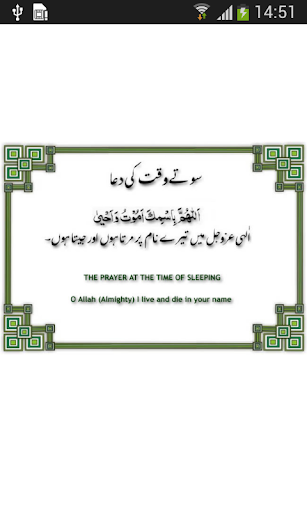 14:51
سوتے وقت کی دعا
اَللّٰهُمَّ بِاسْمِكَ اَمُوْتُ وَاَحْيٰى
الٰہی عزوجل میں تیرے نام پر مرتا ہوں اور جیتا ہوں۔
THE PRAYER AT THE TIME OF SLEEPING
O Allah (Almighty) I live and die in your name